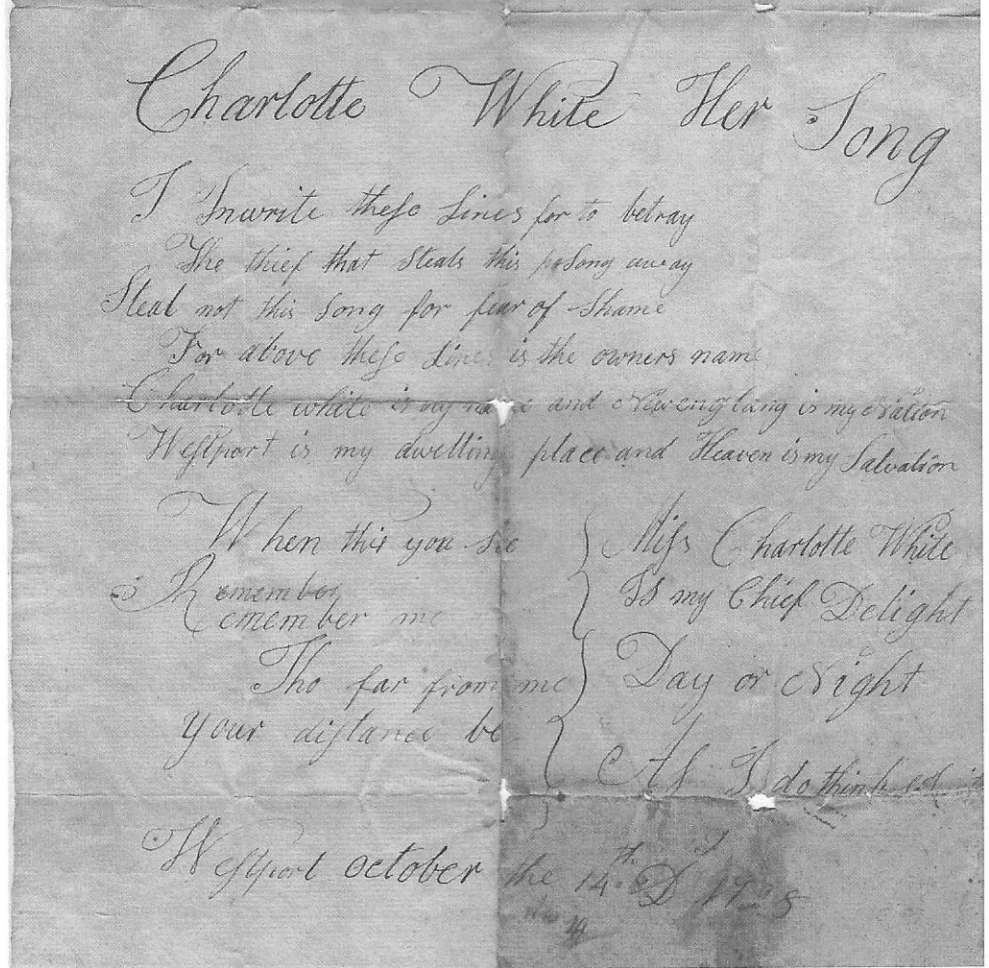 Charlotte White Her Song
I Inwrite these Lines for to betray
The thief that Steals this Song away
Steal not this Song for fear of Shame
For above these Lines is the owners name
Charlotte white is my name and Newenglang is my Nation
Westport is my dwelling place and Heaven is my Salvation
When this you See
Remember
Remember me
Tho far from me
your distance be
Miss Charlotte White
IS my Chief Delight
Day or Night
As I do think
Westport october the 14th D